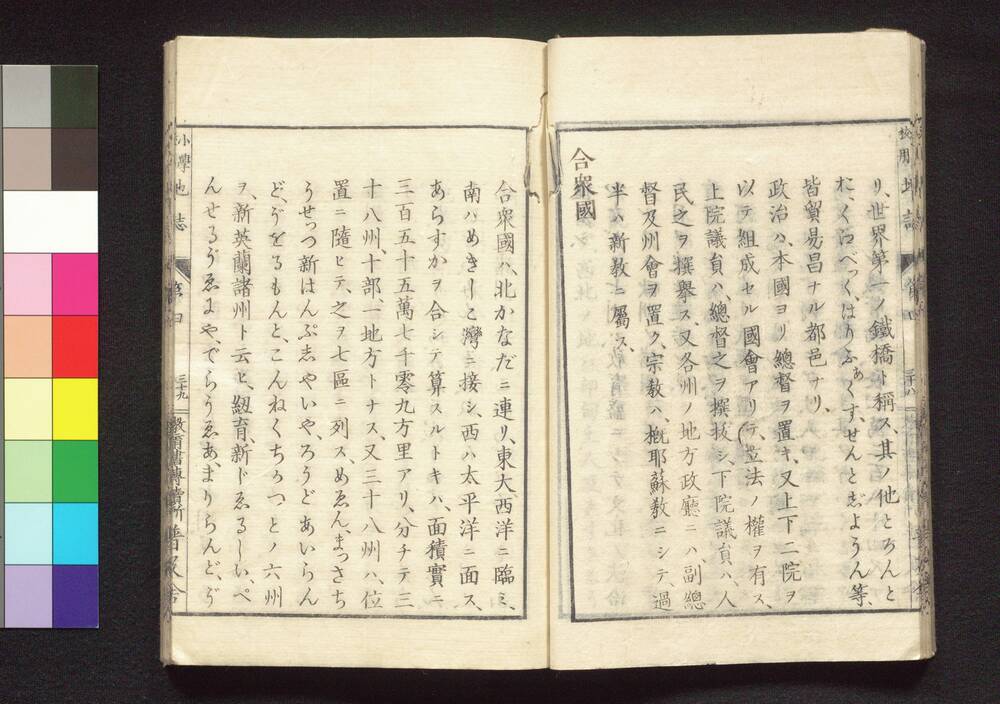 リ、世界第一ノ鐵橋ト稱ス、其ノ他とろんと
た、くゑべっく、はりふぁくす、せんとぢようん等、
皆貿易昌ナル都邑ナリ、
政治ハ、本國ヨリ總督ヲ置キ、又上下二院ヲ
以テ組成セル國會アリテ、立法ノ權ヲ有ス、
上院議員ハ、總督之ヲ撰拔シ、下院議員ハ、人
民之ヲ撰擧ス、又各州ノ地方政廳ニハ、副總
督及州會ヲ置ク、宗敎ハ、槪耶蘇敎ニシテ、過
半ハ新敎ニ屬ス、
合衆國
合衆國ハ、北かなだニ連リ、東大西洋ニ臨ミ、
南ハめきしこ灣ニ接シ、西ハ太平洋ニ面ス、
あらすかヲ合シテ算スルトキハ、面積實ニ
三百五十五萬七千零九方里アリ、分チテ三
十八州、十部、一地方トナス、又三十八州ハ、位
置ニ隨ヒテ、之ヲ七區ニ列ス、めゑん、まっさち
うせっつ、新はんぷ志やいや、ろうどあいらん
ど、ゔをるもんと、こんねくちかっとノ六州
ヲ、新英蘭諸州ト云ヒ、紐育、新ドゑるしい、ぺ
んせるゔゑにや、でらうゑあ、まりらんど、ゔ
小學地誌
第四
三十九